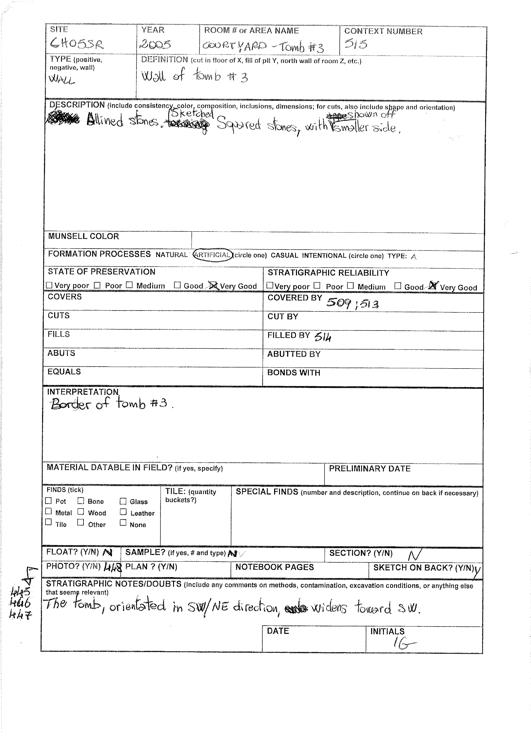 SITE YEAR ROOM # or AREA NAME CONTEXT NUMBER
CH05SR 2005 COURTYARD - Tomb #3 515
TYPE (positive, negative, wall) DEFINITION (cut in floor of X, fill of pit Y, north wall of room Z, etc.)
WALL Wall of tomb #3
DESCRIPTION (include consistency, color, composition, inclusions, dimensions; for cuts, also include shape and orientation)
Sketched spawn off
Allined stones. Squared stones, with smaller side.
MUNSELL COLOR
FORMATION PROCESSES NATURAL ARTIFICIAL (circle one) CASUAL INTENTIONAL (circle one) TYPE: A
STATE OF PRESERVATION STRATIGRAPHIC RELIABILITY
Very poor Poor Medium Good Very Good Very poor Poor Medium Good Very Good
COVERS COVERED BY 509; 513
CUTS CUT BY
FILLS FILLED BY 514
ABUTS ABUTTED BY
EQUALS BONDS WITH
INTERPRETATION
Border of tomb #3.
MATERIAL DATABLE IN FIELD? (if yes, specify) PRELIMINARY DATE
FINDS (tick) TILE: (quantity buckets?) SPECIAL FINDS (number and description, continue on back if necessary)
Pot Bone Glass
Metal Wood Leather
Tile Other None
FLOAT? (Y/N) N SAMPLE? (if yes, # and type) N SECTION? (Y/N) N
PHOTO? (Y/N) 448 PLAN ? (Y/N) NOTEBOOK PAGES SKETCH ON BACK? (Y/N) y
445
446
447
STRATIGRAPHIC NOTES/DOUBTS (Include any comments on methods, contamination, excavation conditions, or anything else
that seems relevant)
The tomb, orientated in SW/NE direction, widens toward SW.
DATE INITIALS
IG